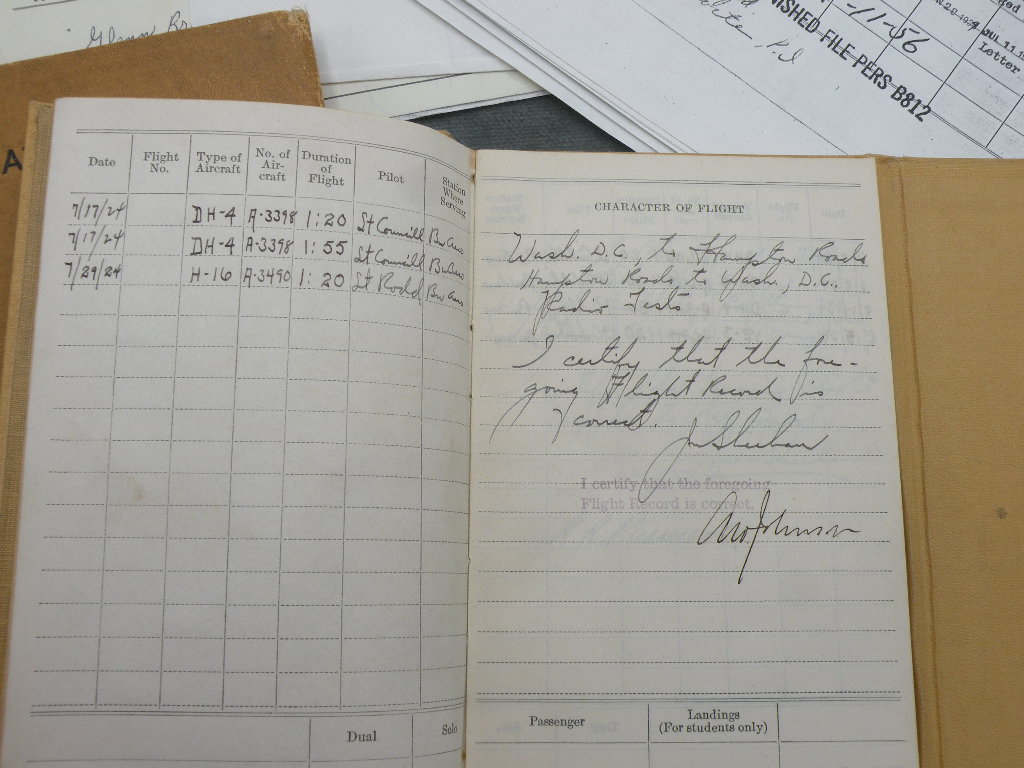 Glenn Br
-11-56
NISHED FILE PERS B812
JUL 11
Letter
P.I
A
Date Flight No. Type of Aircraft No. of Air-craft Duration of Flight Pilot Station Where Serving
7/17/24 DH-4 A-3398 1:20 Lt Councill BuAero
7/17/24 DH-4 A-3398 1:55 Lt Councill BuAero
7/29/24 H-16 A-3490 1:20 Lt Rodd Bu Aero
Dual Solo
CHARACTER OF FLIGHT
Wash. D.C., to Hampton Roads
Hampton Roads to Wash., D.C.
Radio Tests
I certify that the fore-
going Flight Record is
correct.
I certify that the foregoing
Flight Record is correct.
Johnson
Passenger
Landings
(For students only)